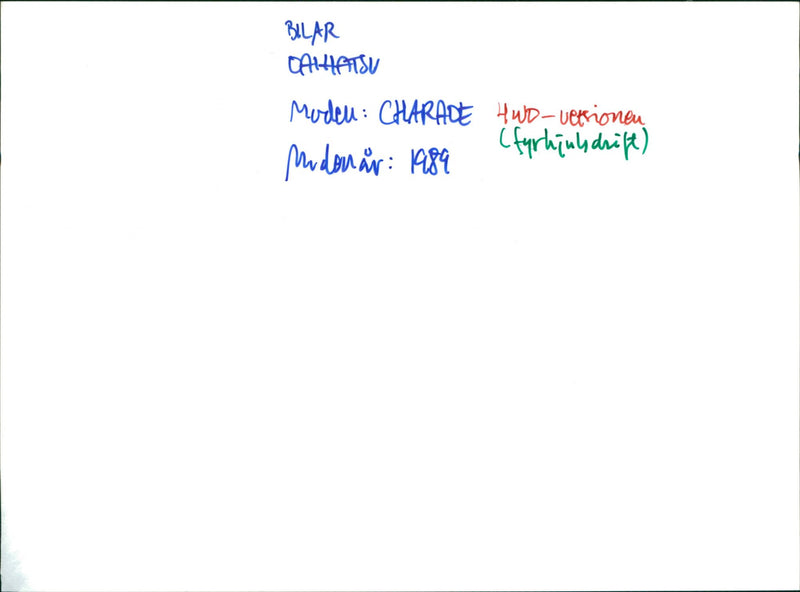 BILAR
DAIHATSU
Modell: CHARADE 4WD-versionen
(fyrhjulsdrift)
Modellår: 1989